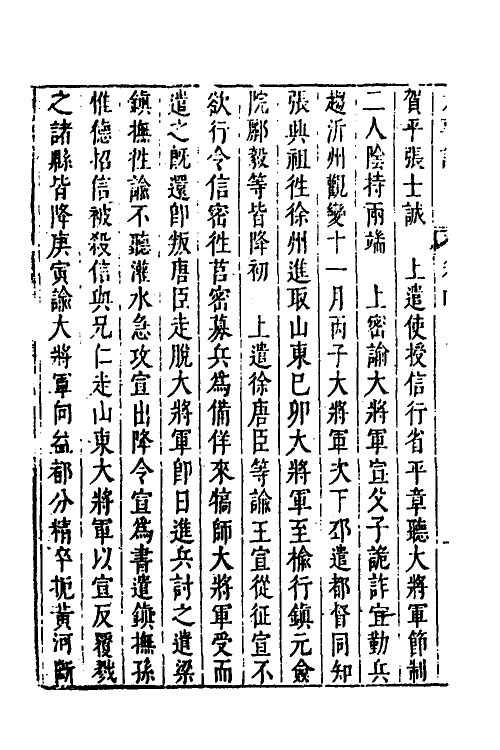 賀平張士誠　上遣使授信行省平章聽大將軍節制
二人陰持兩端　上密諭大將軍宣父子詭詐宜勤兵
趨沂州觀變十一月丙子大將軍次下邳遣都督同知
張興祖徃徐州進取山東已卯大將軍至榆行鎮元僉
院鄺毅等皆降初　上遣徐唐臣等諭王宣從征宣不
欲行令信密徃莒密募兵爲備佯來犒師大將軍受而
遣之旣還卽叛唐臣走脫大將軍卽日進兵討之遣梁
鎮撫徃諭不聽灌水急攻宣出降令宣爲書遣鎮撫孫
惟德招信被殺信與兄仁走山東大將軍以宣反覆戮
之諸縣皆降庚寅諭大將軍向益都分精卒扼黃河斷